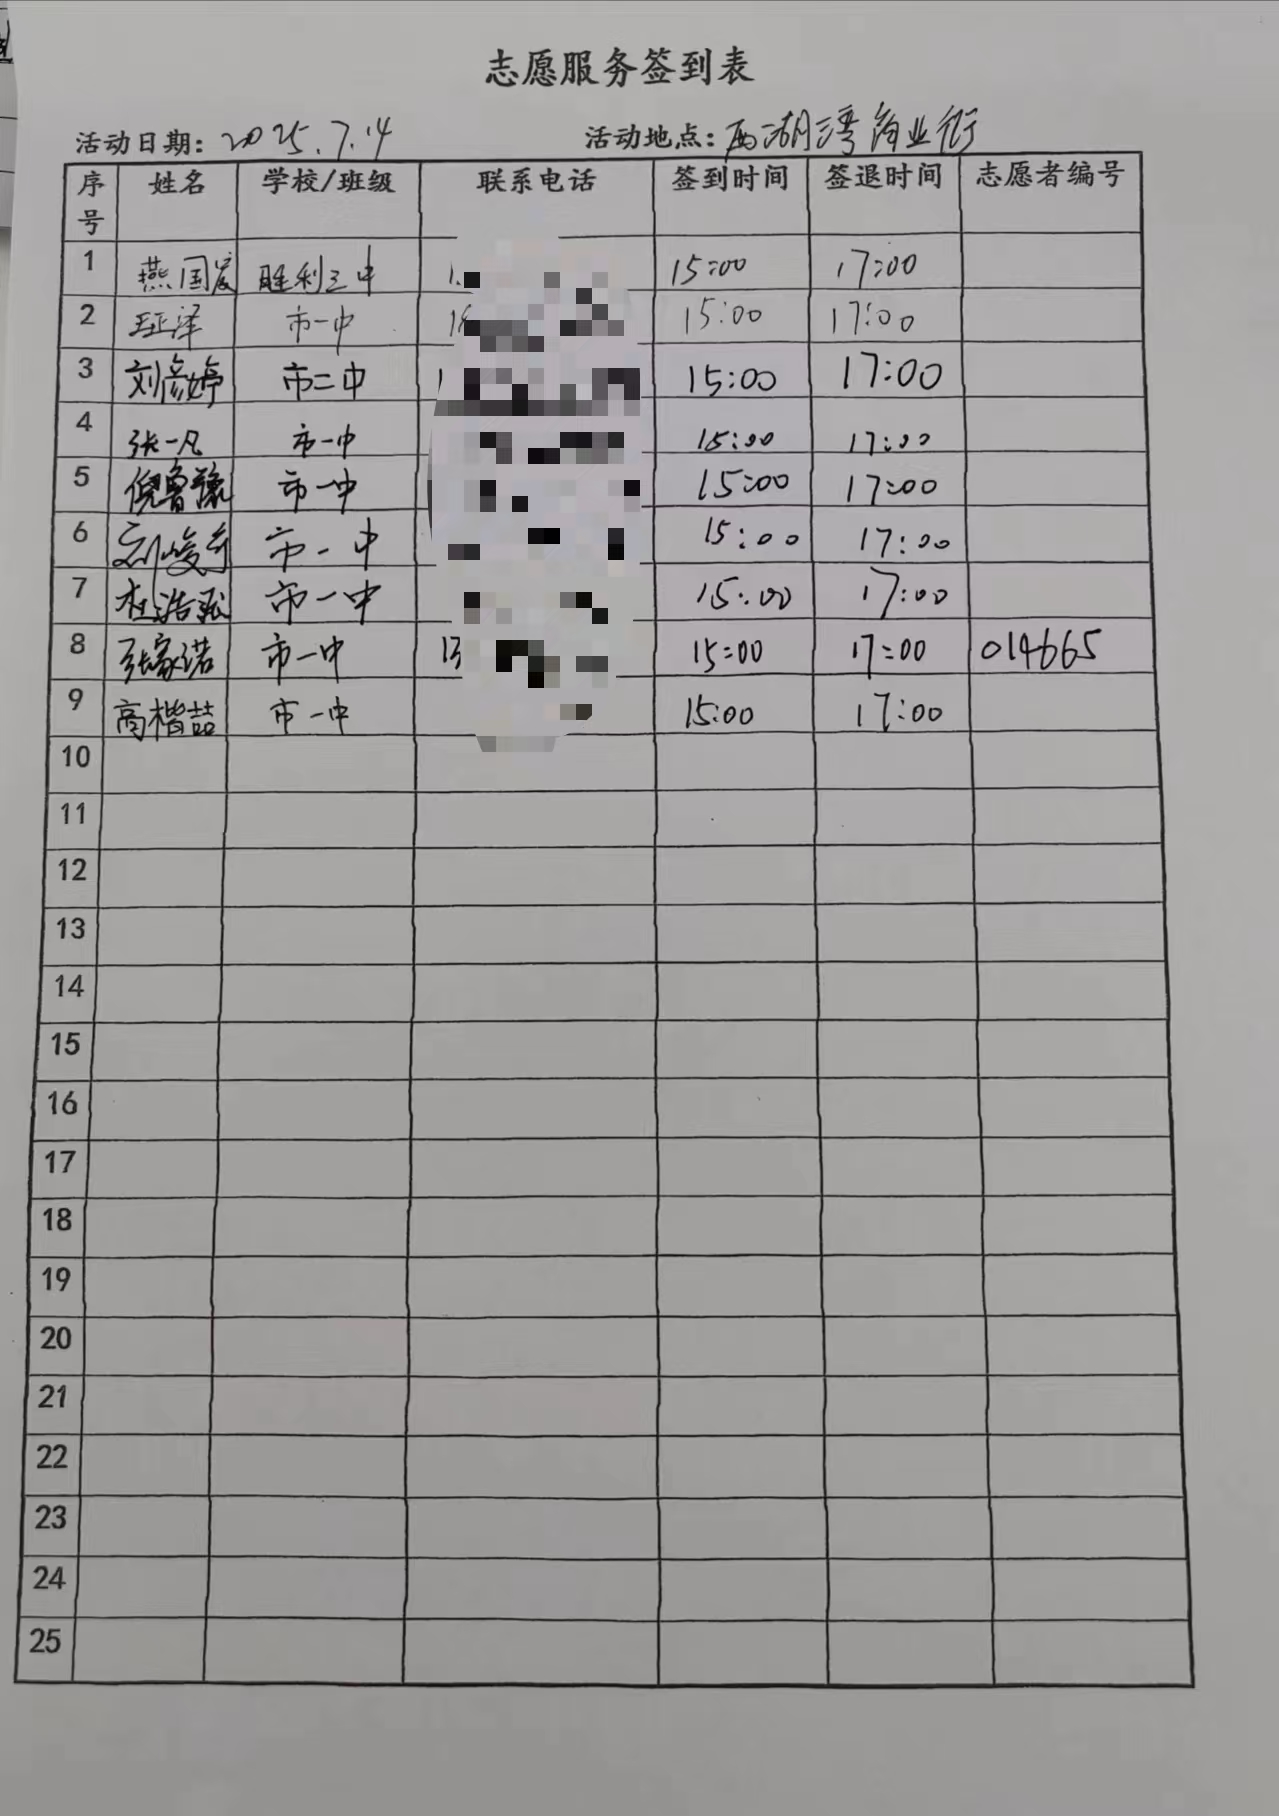 志愿服务签到表
活动日期: 2025.7.14 活动地点: 西湖湾商业街
序号 姓名 学校/班级 联系电话 签到时间 签退时间 志愿者编号
1 燕国宸 胜利三中 1 15:00 17:00
2 王正泽 市一中 18 15:00 17:00
3 刘彦婷 市二中 1 15:00 17:00
4 张一凡 市一中 15:00 17:00
5 倪鲁豫 市一中 15:00 17:00
6 刘峻 市一中 15:00 17:00
7 杜浩 市一中 15:00 17:00
8 张家诺 市一中 13 15:00 17:00 014665
9 高楷喆 市一中 15:00 17:00
10
11
12
13
14
15
16
17
18
19
20
21
22
23
24
25